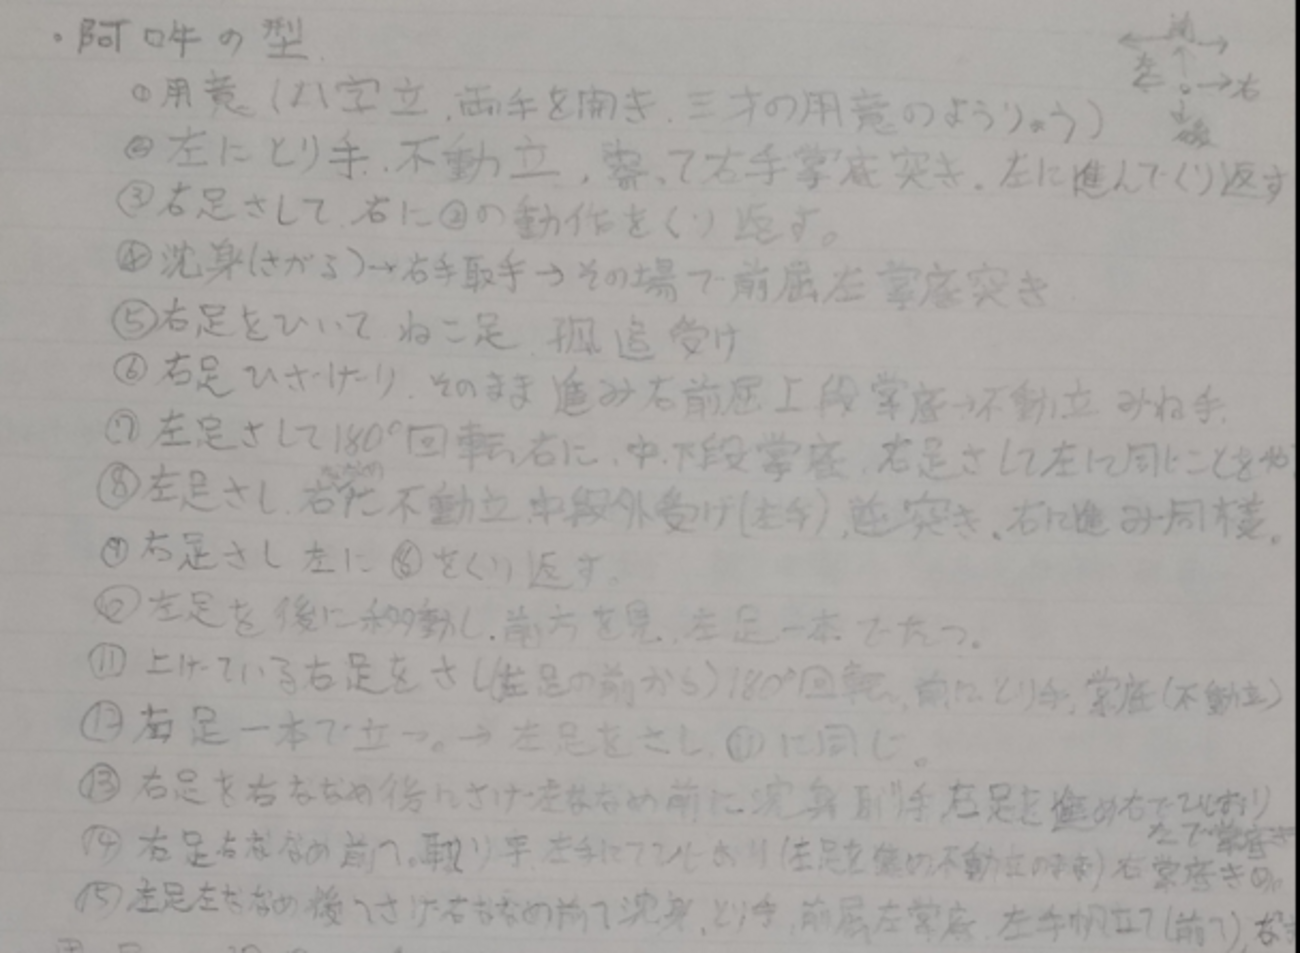 ・阿吽の型
前
左 右
後
①用意(八字立、両手を開き、三才の用意のようりょう)
②左にとり手、不動立、寄って右手掌底突き。左に進んでくり返す
③右足さして、右に②の動作をくり返す。
④沈身(さがる)→右手取手→その場で前屈左掌底突き
⑤右足をひいて ねこ足 孤追受け
⑥右足ひざけり、そのまま進み右前屈上段掌底→不動立 みね手、
⑦左足さして180°回転、右に、中、下段掌底、右足さして左に同じことをや
⑧左足さし、右ななめに不動立、中段外受け(左手)、逆突き。右に進み同様。
⑨右足さし 左に⑧をくり返す。
⑩左足を後に移動し、前方を見、左足一本でたつ。
⑪上げている右足をさし(左足の前から)180°回転、前にとり手、掌底(不動立)
⑫右足一本で立つ。→左足をさし、⑪に同じ。
⑬右足を右ななめ後にさげ左ななめ前に沈身取り手 左足を進め右でひじおり
左で掌底き
⑭右足右ななめ前へ。取り手 左手にてひじおり(左足を進め不動立のまま)右掌底き
⑮左足左ななめ後へさげ右ななめ前で沈身、とり手、前屈左掌底、左手帆立て(前へ)、